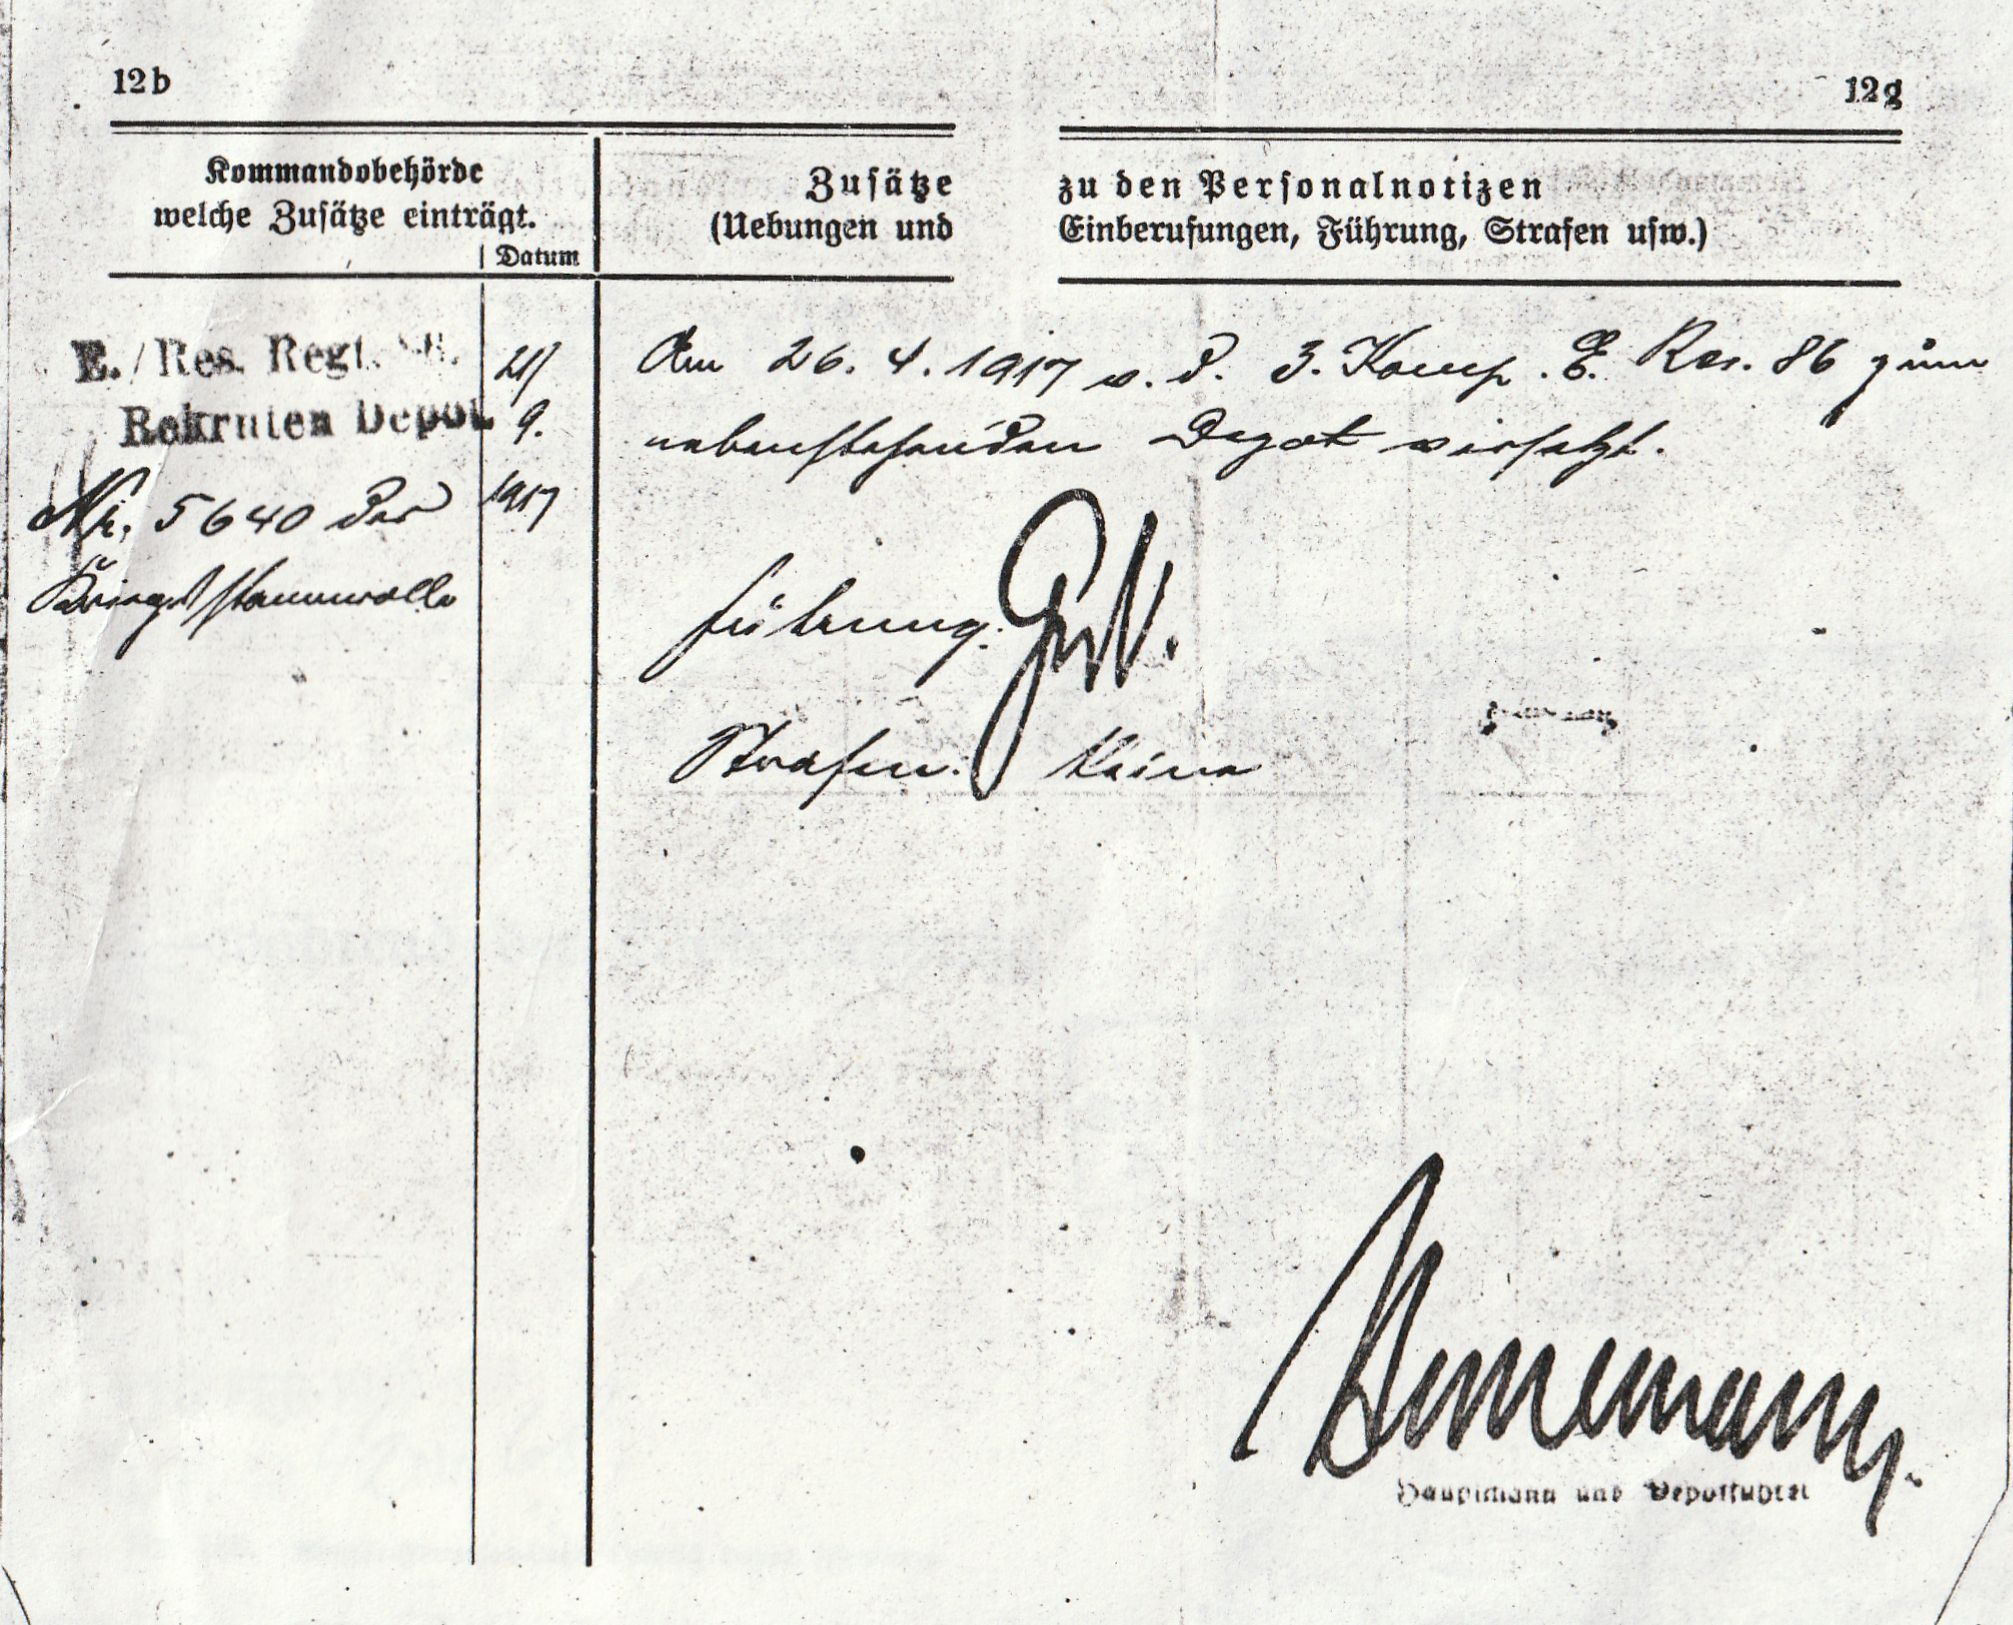 12b
12g
Kommandobehörde
welche Zusätze einträgt.
Datum
Zusätze
(Uebungen und
zu den Personalnotizen
Einberufungen, Führung, Strafen usw.)
E./Res. Regt.
Rekruten Depot.
Nr. 5640 der
Kriegsstammrolle
21/
9.
1917
Am 26.4.1917 v. d. 3. Komp. E. Res. 86 zum
nebenstehenden Depot versetzt.
Führung: Gut.
Strafen: Keine
Hauptmann und Depotführer